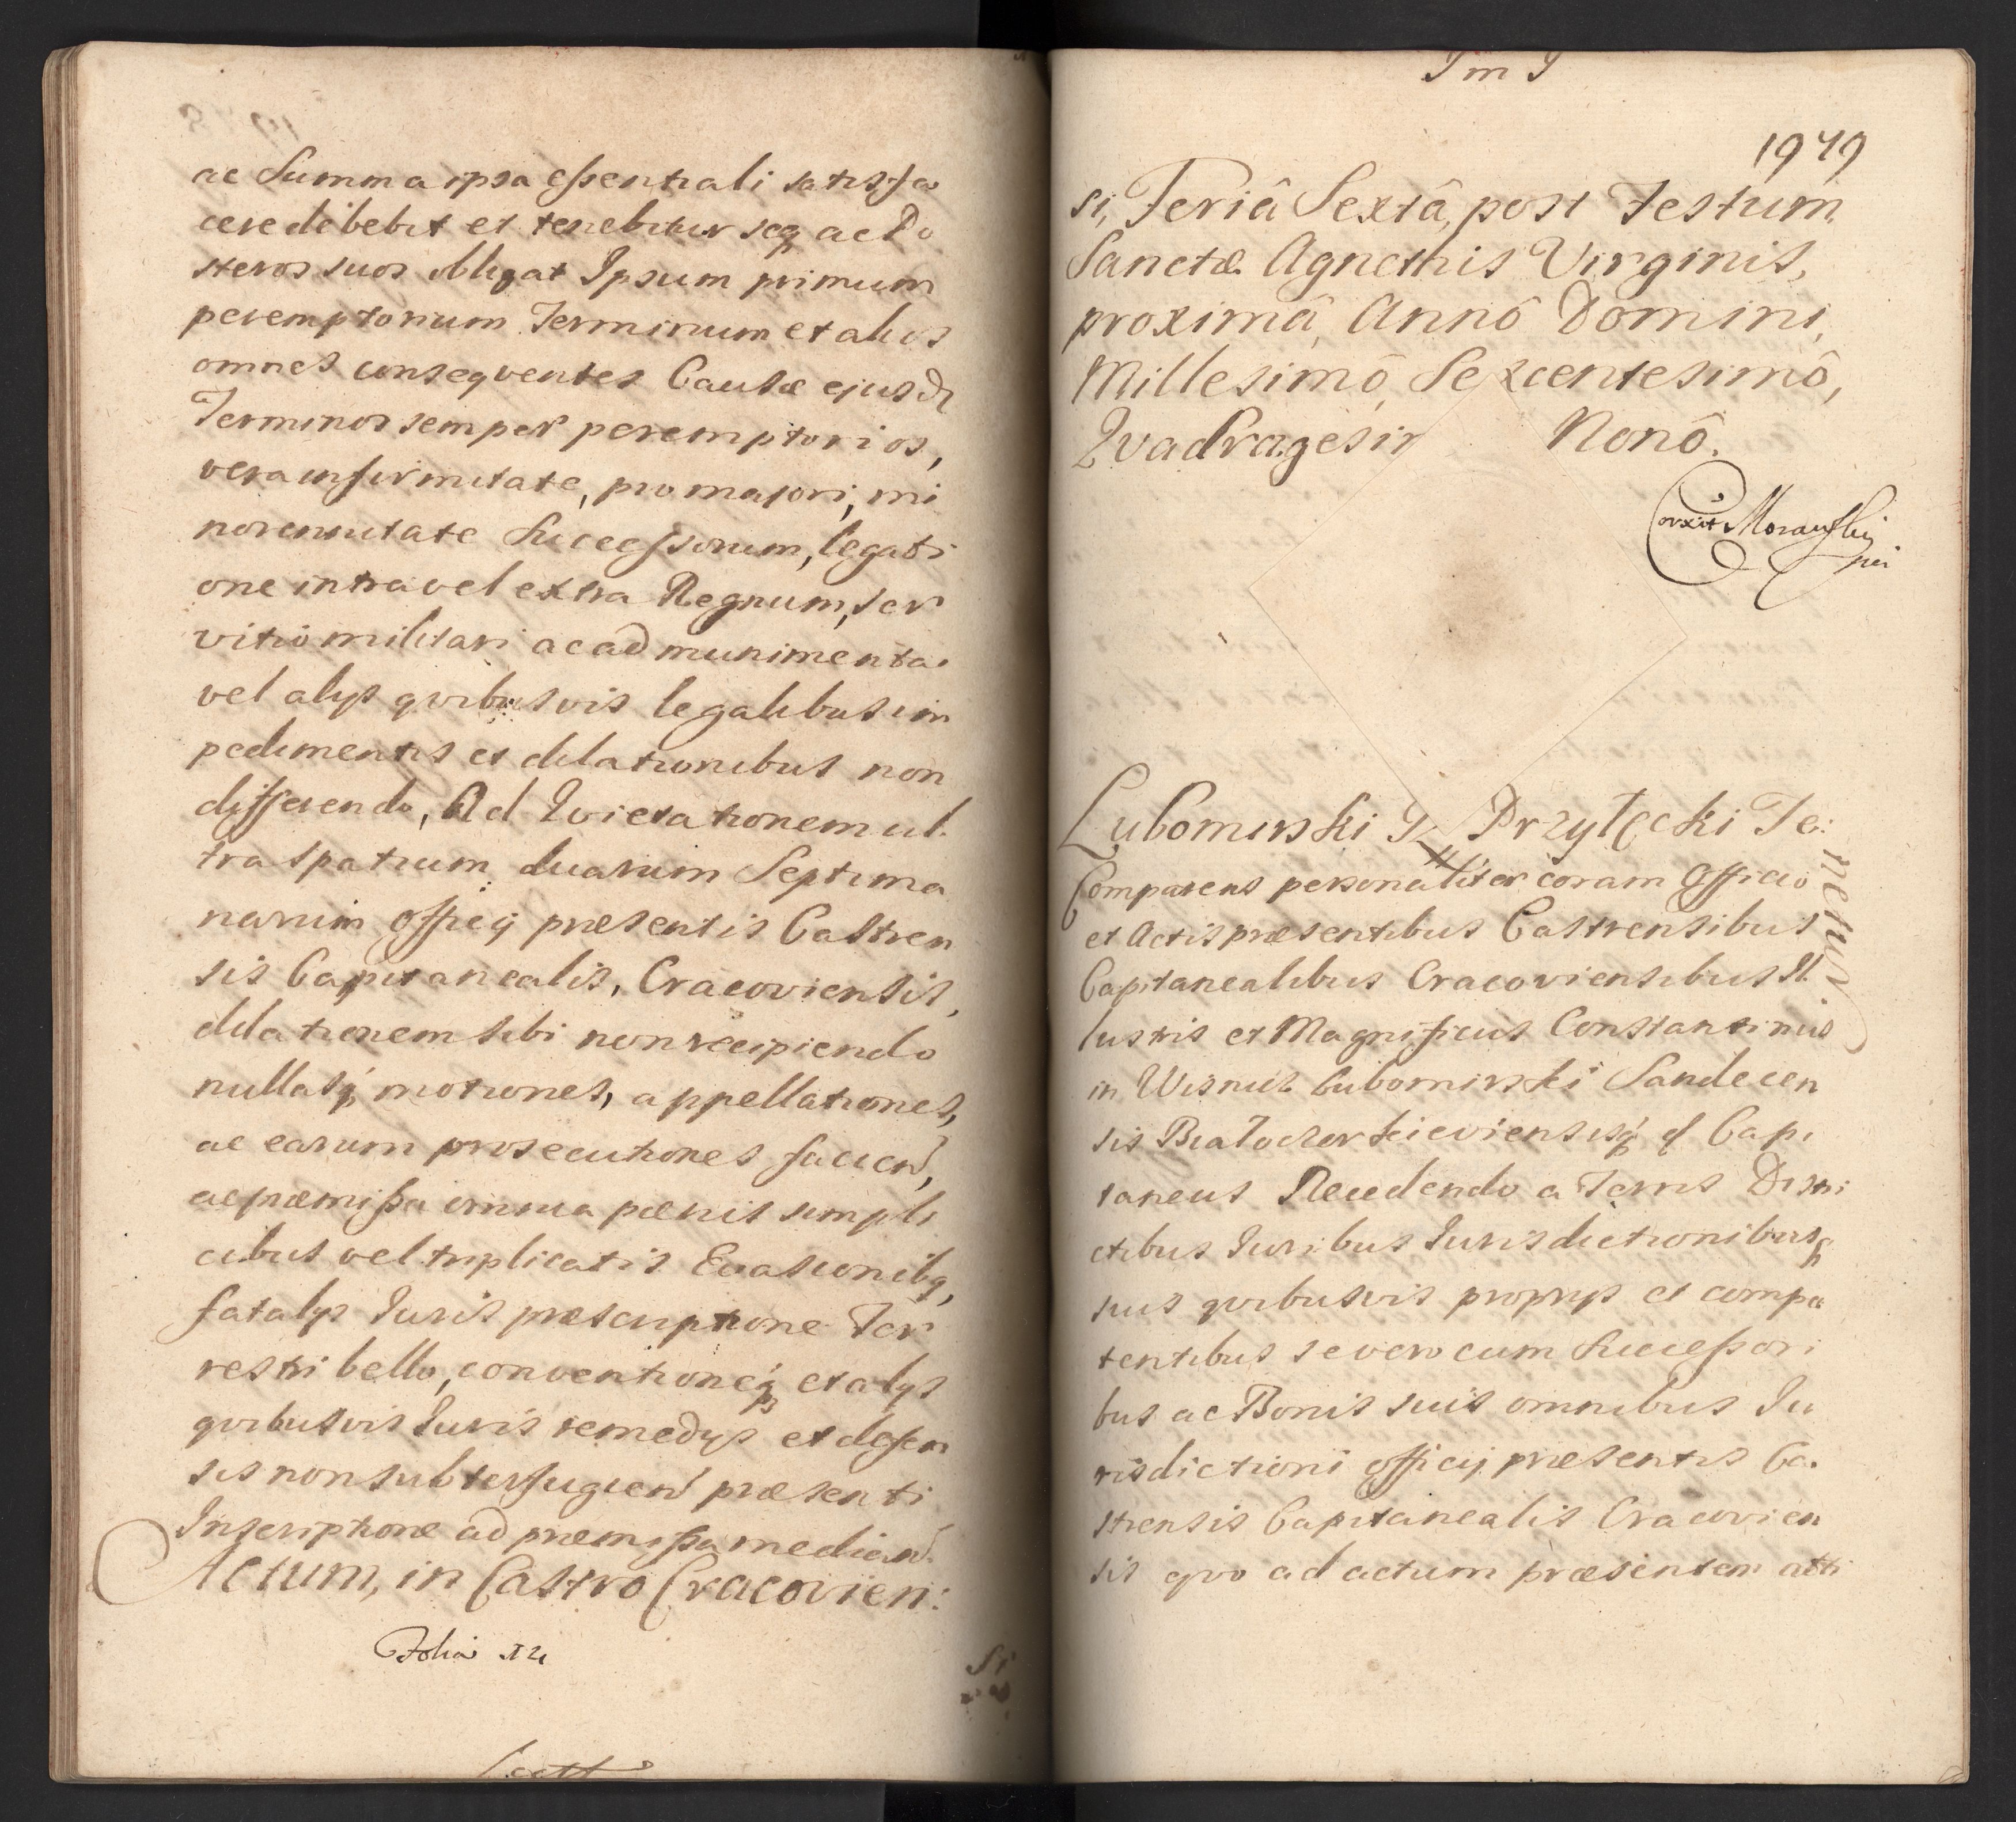 ac Summa ipsa essentiali satisfa
cere debebit et tenebitur seq̃ ac Po
steros suos obligat Ipsum primum
peremptorium Terminum et alios
omnes conseqventes Causæ ejusd
Terminos semper peremptorios,
vera infirmitate, pro majori, mi
norennitate Successorum, legati
one intra vel extra Regnum, ser
vitio militari ac ad munimenta
vel alijs qvibusvis legalibus im
pedimentis et dilationibus non
differendo, Ad Qvietationem ul
tra spatium duarum Septima
narum Officij præsentis Castren
sis Capitanealis, Cracoviensis,
dilationem sibi non recipiendo
nullasq́ motiones, appellationes,
ac earum prosecutiones facien,
ac præmissa omnia pænis simpli
cibus vel triplicatis Evasionibq,
fatalijs Iuris præscriptione Ter
restri bello, conventioneq́ et alijs
qvibusvis Iuris remedijs et defen
sis non subterfugien præsenti
Inscriptione ad præmissa median
Actum, in Castro Cracovien:
Folia
Si
I m I
1949
si, Feriâ Sextâ, post Festum
Sanctæ Agnethis Virginis,
proximâ, Annô Domini,
Millesimô, Sexcentesimô,
Qvadragesim Nonô.
Lubomirski Przyłęcki Te:
netur
Comparens personaliter coram Officio
et Actis præsentibus Castrensibus
Capitanealibus Cracoviensibus Il
lustris et Magnificus Constantinus
in Wisnicz Lubomirski Sandecen
sis Białocerkieviensisq́ Capi
taneus Recedendo a Terris Distri
ctibus Iuribus Iurisdictionibusq
suis qvibusvis proprijs et compe
tentibus se vero cum Successori
bus ac Bonis suis omnibus Iu
risdictioni Officij præsentis Ca
strensis Capitanealis Cracovien
sis qvo ad actum præsentem atti